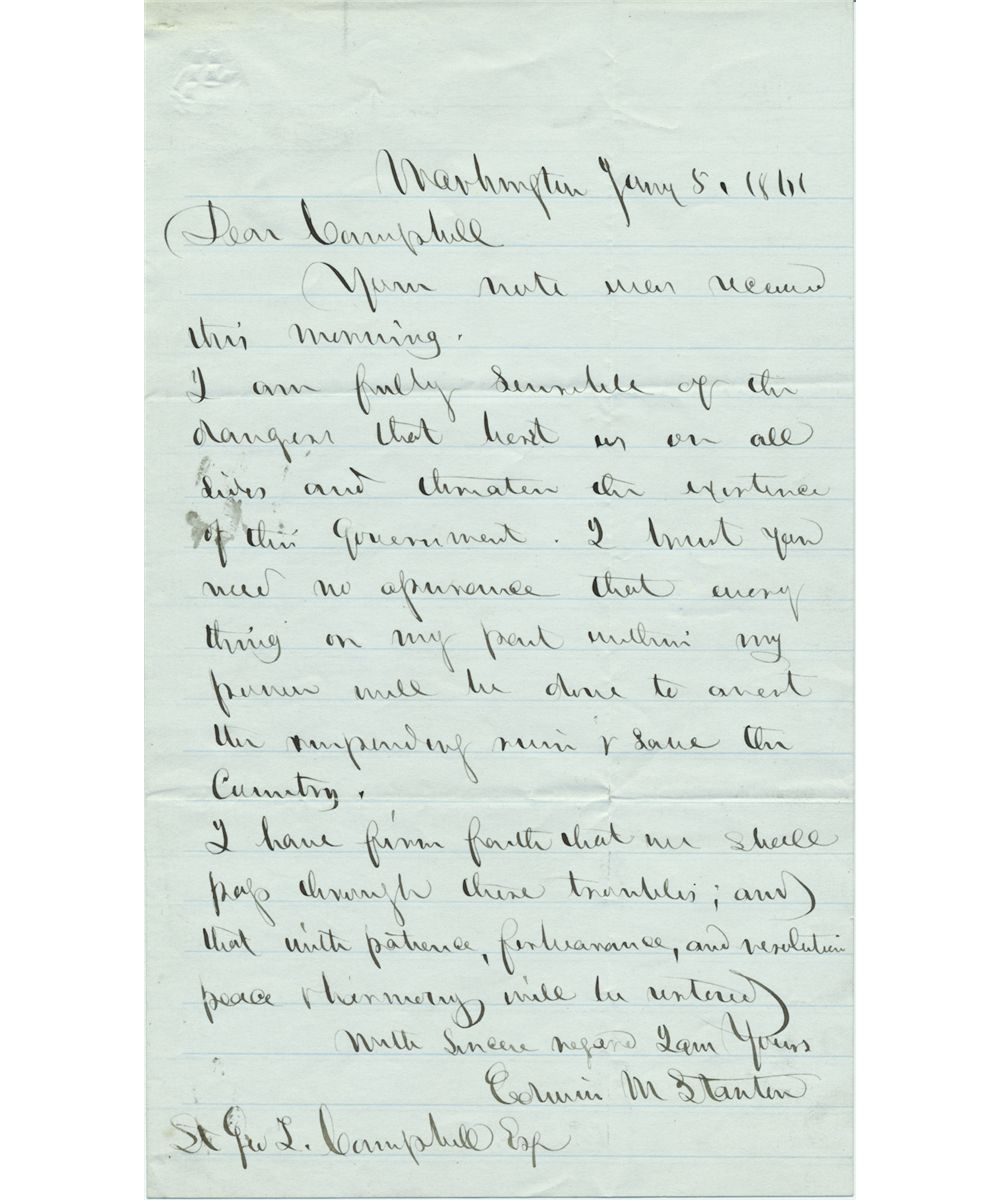 Washington Jany 5. 1861
Dear Campbell
Your note was received
this morning.
I am fully sensible of the
dangers that beset us on all
sides and threaten the existence
of this Government. I trust you
need no assurance that every
thing on my part within my
power will be done to avert
the impending ruin & save the
Country.
I have firm faith that we shall
pass through these troubles; and
that with patience, forbearance, and resolution
peace & harmony will be restored
With sincere regard I am Yours
Edwin M Stanton
St Geo T. Campbell Esq